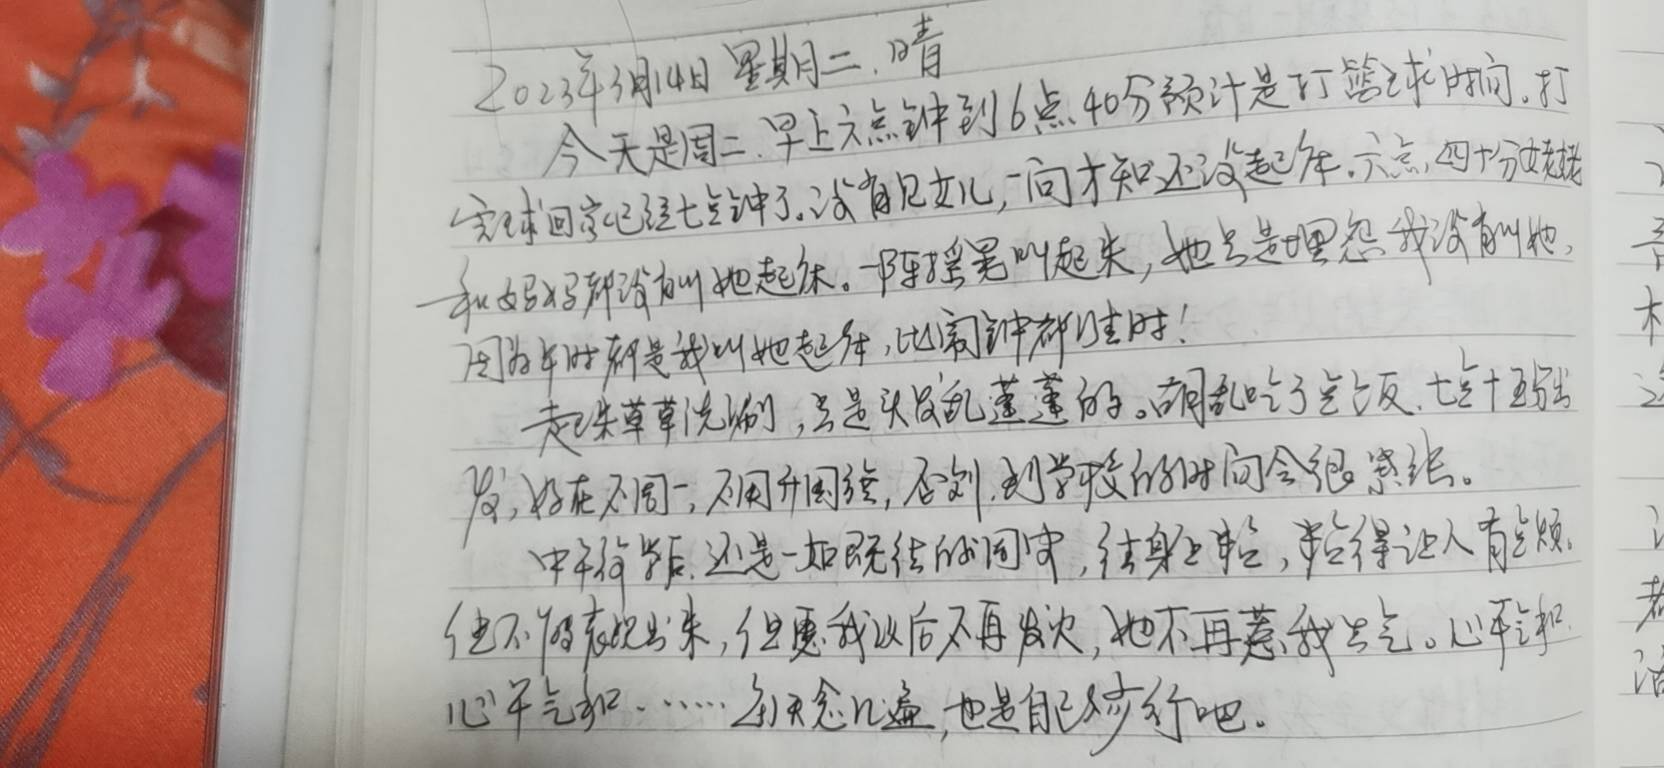 2023年3月14日 星期二.晴
今天是周二.早上六点钟到6点40分预计是打篮球时间.打
完球回家已经七点钟了。没有见女儿,一问才知还没起床.六点四十分姥姥
和妈妈都没有叫她起床。一阵摇晃叫起来,她总是埋怨我没有叫她,
因为平时都是我叫她起床,比闹钟都准时!
起来草草洗涮,总是头发乱蓬蓬的。胡乱吃了点饭.七点十五分出
发,好在不周一,不用升国旗,否则.到学校的时间会很紧张。
中午放学后.还是一如既往的困,往身上,得让人有点烦.
但不能表现出来,但愿我以后不再发火,她不再惹我生气。心平气和.
心平气和......每天念几遍,也是自己修行吧。